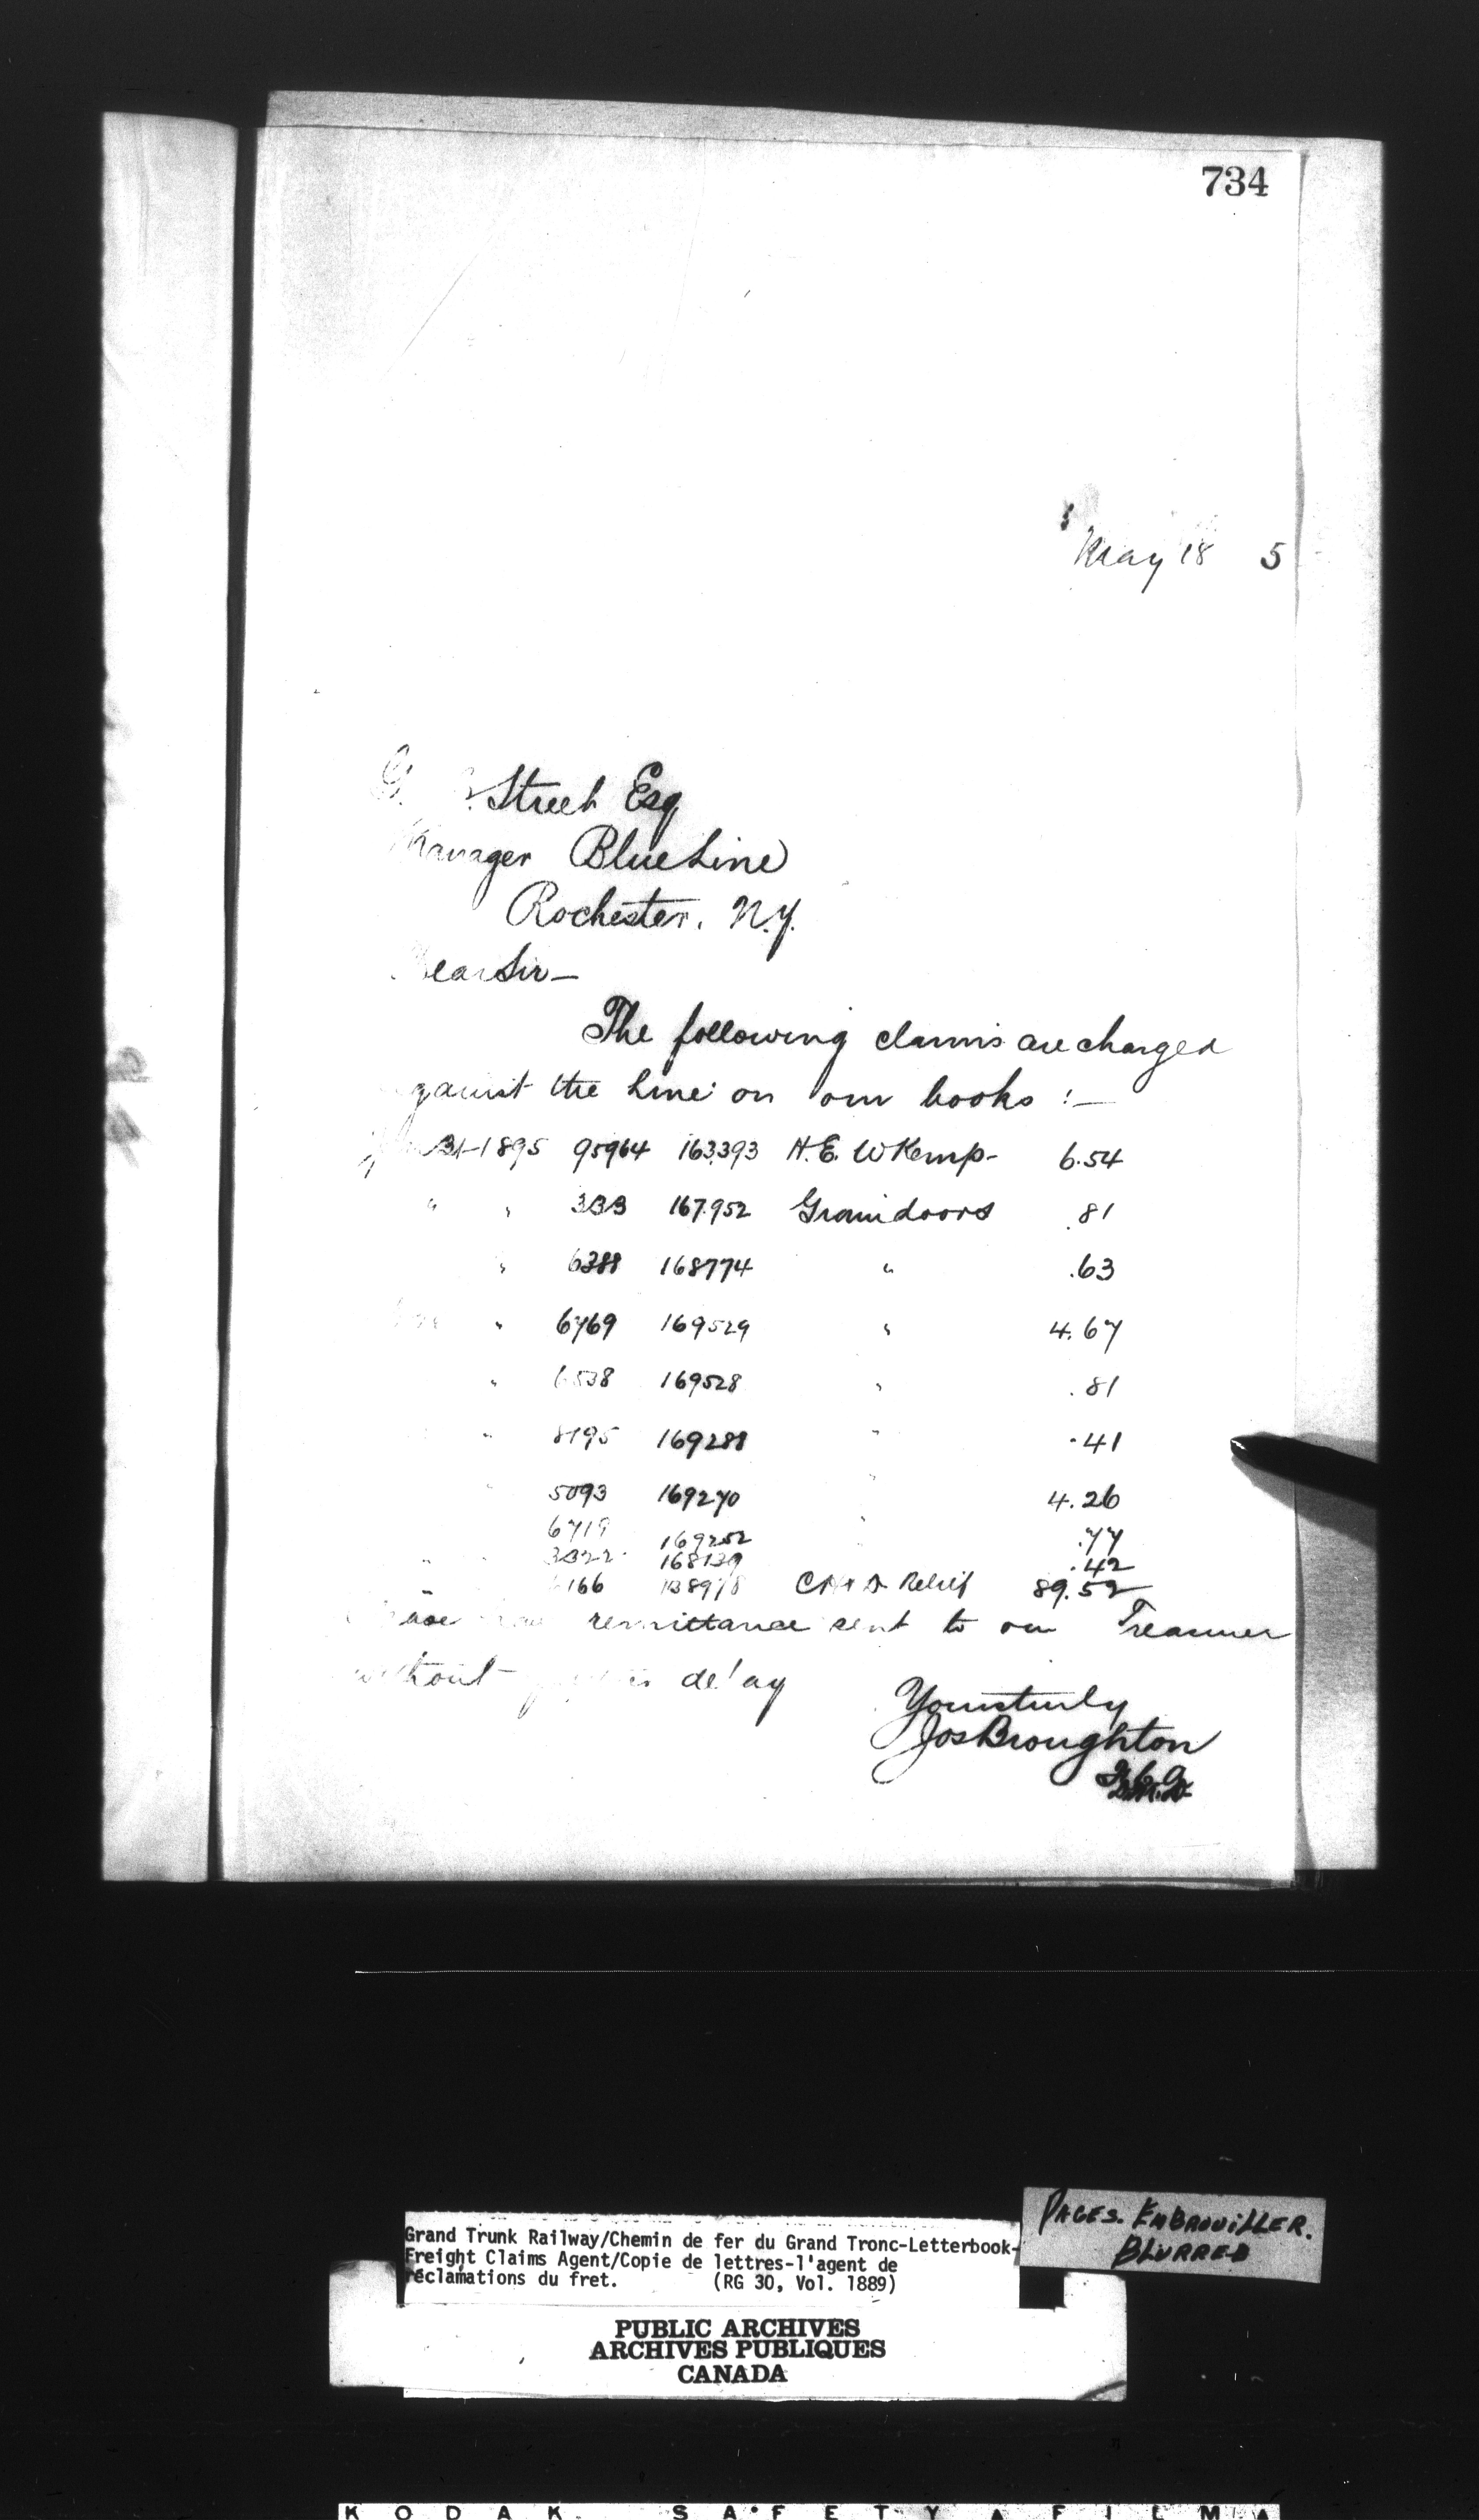 734
May 18 5
G. Street Esq
Manager Blue Line
Rochester. N.Y.
Dear Sir—
The following claims are charged
against the Line on our books :—
31-1895 95964 163393 H.E. W Kemp- 6.54
" " 333 167952 Graindoors .81
" 6388 168774 " .63
" 6769 169529 " 4.67
" 6538 169528 " .81
" 8195 169288 " .41
" 5093 169270 " 4.26
6719 169252 " .77
" " 3322 168139 .42
" 166 138978 Relief 89.52
remittance sent to our Treasurer
without delay
Yours truly
Jos Broughton
Grand Trunk Railway/Chemin de fer du Grand Tronc-Letterbook-
Freight Claims Agent/Copie de lettres-l'agent de
réclamations du fret. (RG 30, Vol. 1889)
PAGES EMBROUILLER.
BLURRED
PUBLIC ARCHIVES
ARCHIVES PUBLIQUES
CANADA
KODAK SAFETY FILM